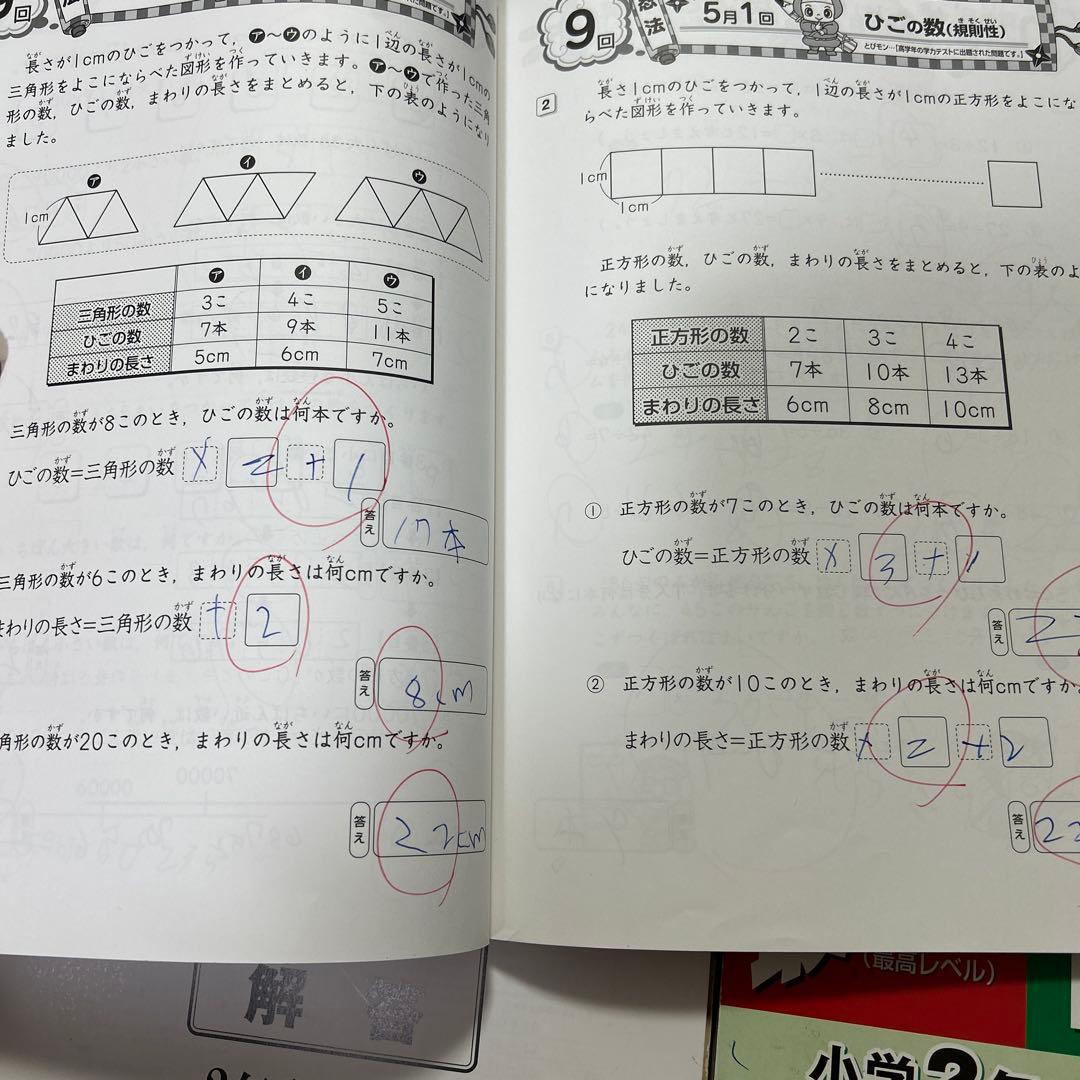 9回
長さが1cmのひごをつかって、㋐〜㋒のように1辺の長さが1cmの
三角形をよこにならべた図形を作っていきます。㋐〜㋒で作った三角
形の数、ひごの数、まわりの長さをまとめると、下の表のようになり
ました。
ア
イ
ウ
1cm
ア イ ウ
三角形の数 3こ 4こ 5こ
ひごの数 7本 9本 11本
まわりの長さ 5cm 6cm 7cm
三角形の数が8このとき、ひごの数は何本ですか。
ひごの数=三角形の数 × 2 + 1
答え 17本
三角形の数が6このとき、まわりの長さは何cmですか。
まわりの長さ=三角形の数 + 2
答え 8cm
角形の数が20このとき、まわりの長さは何cmですか。
答え 22cm
9回
忍法
5月1回
ひごの数(規則性)
とびモン…「高学年の学力テストに出題された問題です。」
2
長さ1cmのひごをつかって、1辺の長さが1cmの正方形をよこにな
らべた図形を作っていきます。
1cm
1cm
正方形の数、ひごの数、まわりの長さをまとめると、下の表のよ
になりました。
正方形の数 2こ 3こ 4こ
ひごの数 7本 10本 13本
まわりの長さ 6cm 8cm 10cm
① 正方形の数が7このとき、ひごの数は何本ですか。
ひごの数=正方形の数 × 3 + 1
答え 2
② 正方形の数が10このとき、まわりの長さは何cmですか
まわりの長さ=正方形の数 × 2 + 2
答え 22
解答
(最高レベル)
小学3年